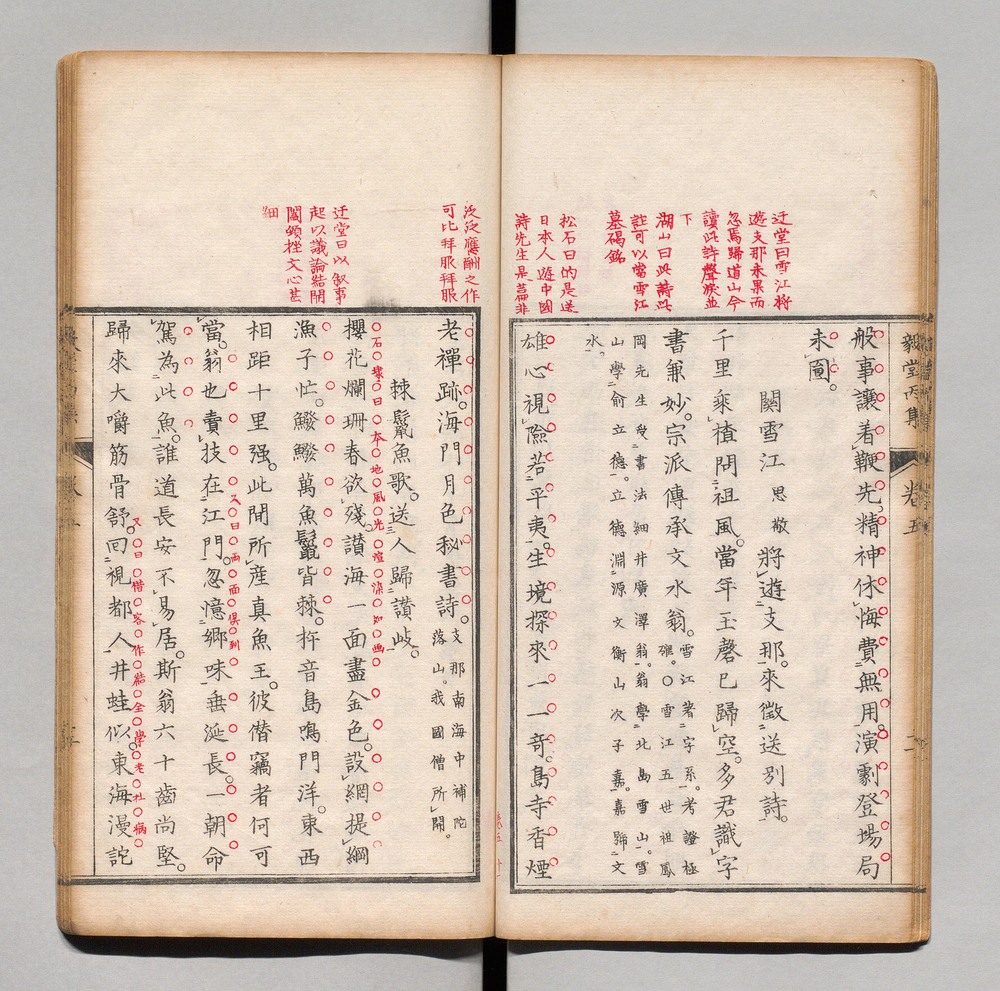 迂堂曰雪江将
遊支那未果而
忽焉歸道山今
讀此詩聲淚並
下
湖山曰此詩此
註可以當雪江
墓碣銘
松石曰的是送
日本人遊中國
詩先生是篇非
泛泛應酬之作
可比拜服拜服
迂堂曰以叙事
起以議論結開
闔頓挫文心甚
細
毅堂丙集
卷五
般事讓着鞭先。精神休悔費無用。演劇登場局
未圓。
關雪江思敬將遊支那。來徵送別詩。
千里乘楂問祖風。當年玉磬已歸空。多君識字
書兼妙。宗派傳承文水翁。雪江著字系。考證極
確。〇雪江五世祖鳳
岡先生受書法細井廣澤翁。翁學北島雪山。雪
山學俞立德。立德淵源文衡山次子嘉。嘉號文
水。
雄心視險若平夷。生境探來一一奇。島寺香煙
老禪跡。海門月色秘書詩。支那南海中補陀
落山。我國僧所開。
棘鬣魚歌。送人歸讃岐。
櫻花爛珊春欲殘。讃海一面盡金色。設網提綱
石埭曰本地風光渲染如畫
漁子忙。鱍鱍萬魚鬣皆棘。杵音島鳴門洋。東西
相距十里强。此間所產真魚王。彼僭竊者何可
當。翁也賣技在江門。忽憶鄉味垂涎長。一朝命
又曰兩面俱到
駕為此魚。誰道長安不易居。斯翁六十齒尚堅。
歸來大嚼筋骨舒。回視都人井蛙似。東海漫詫
又曰借客作結全學老杜病